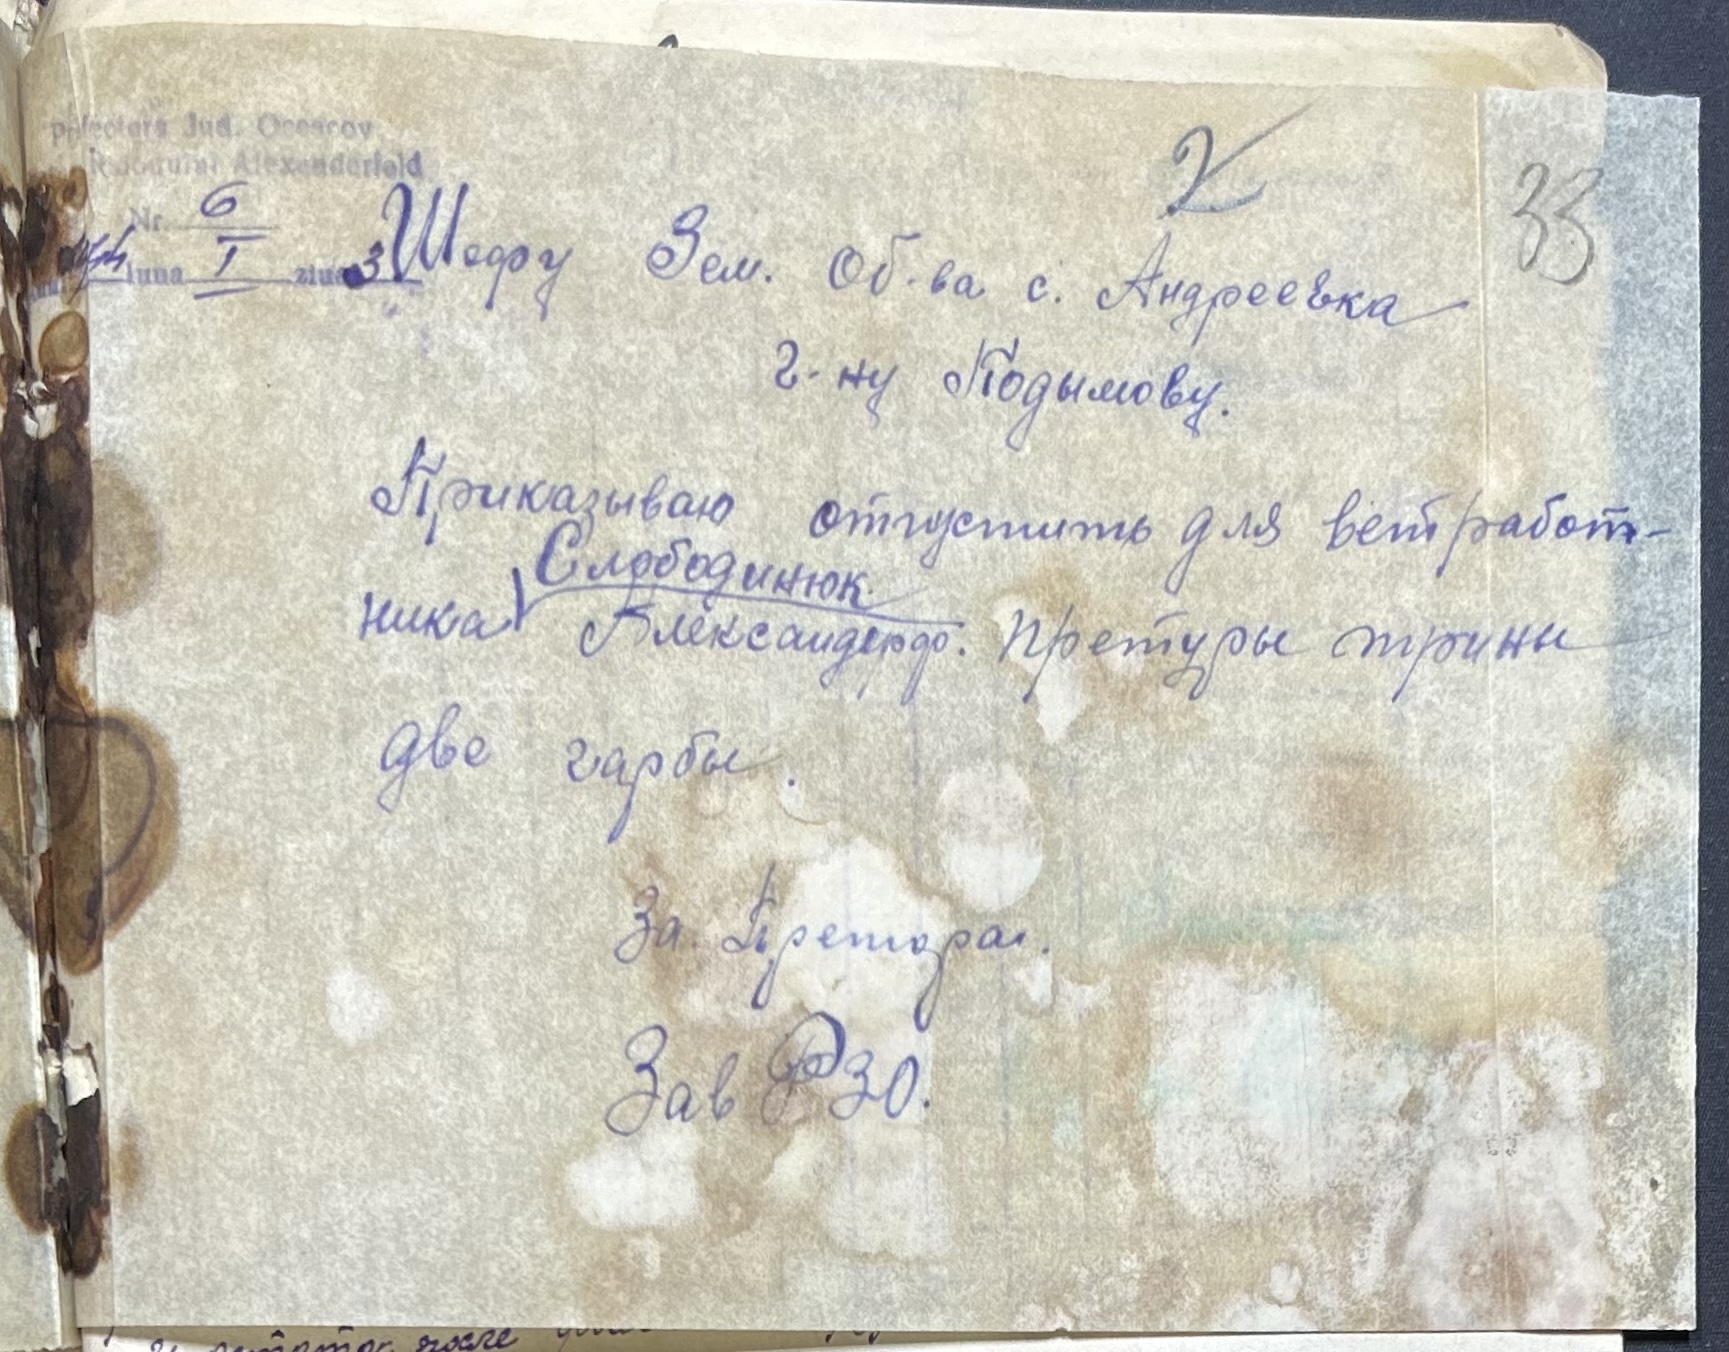 Prefectura Jud. Oceacov
Raionului Alexanderfeld
Nr. 6
luna I ziua 3
33
Шефу Зем. Об-ва с. Андреевка
г-ну Подымову.
Приказываю отпустить для ветработ-
Слободинюк
ника Александерф. претуры трины
две гарбы.
За Претора.
Зав РЗО.
после